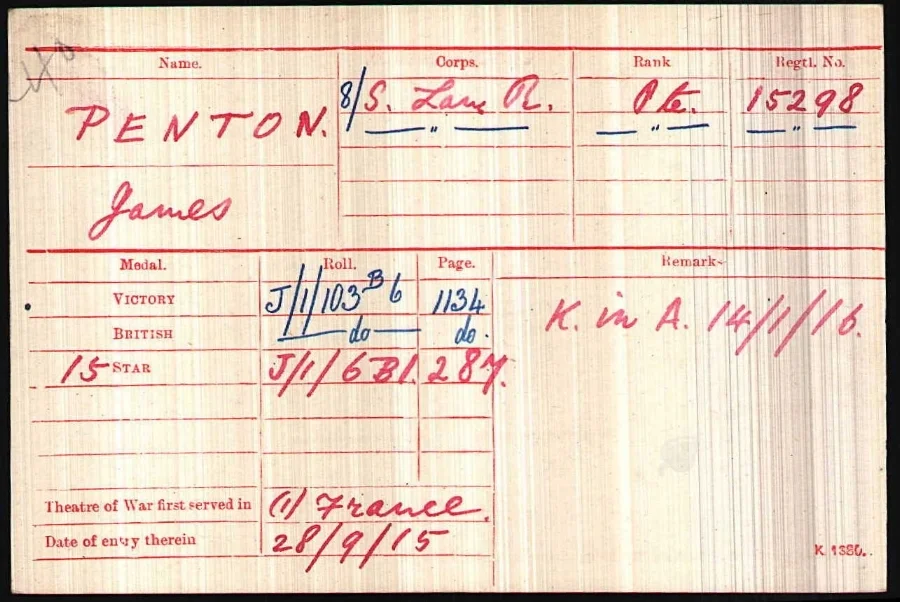 Name. Corps. Rank Regtl. No.
PENTON. 8/S. Lanc R. Pte. 15298
— " — — " — — " —
James
Medal. Roll. Page. Remarks
VICTORY J/1/103 B 6 1134
K. in A. 14/1/16.
BRITISH — do — do.
15 STAR J/1/6 B1. 287.
Theatre of War first served in (1) France.
Date of entry therein 28/9/15
K 1380.